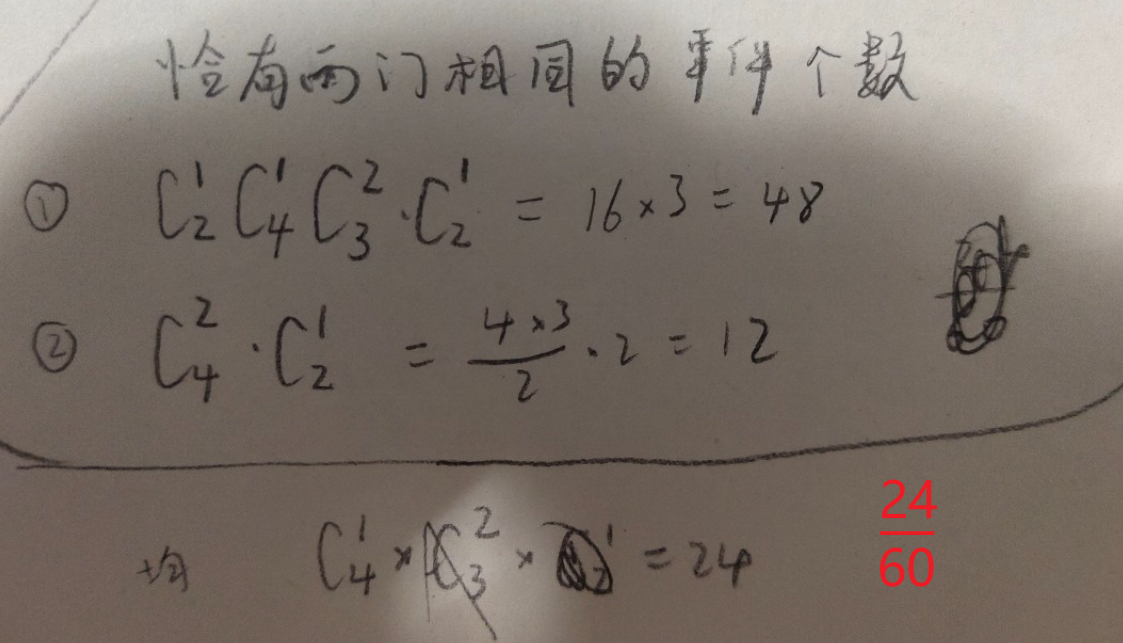 恰有两门相同的事件个数
① C₂¹ C₄¹ C₃² · C₂¹ = 16×3 = 48
② C₄² · C₂¹ = 4×3/2 · 2 = 12
均 C₄¹ × C₃² × = 24
24/60